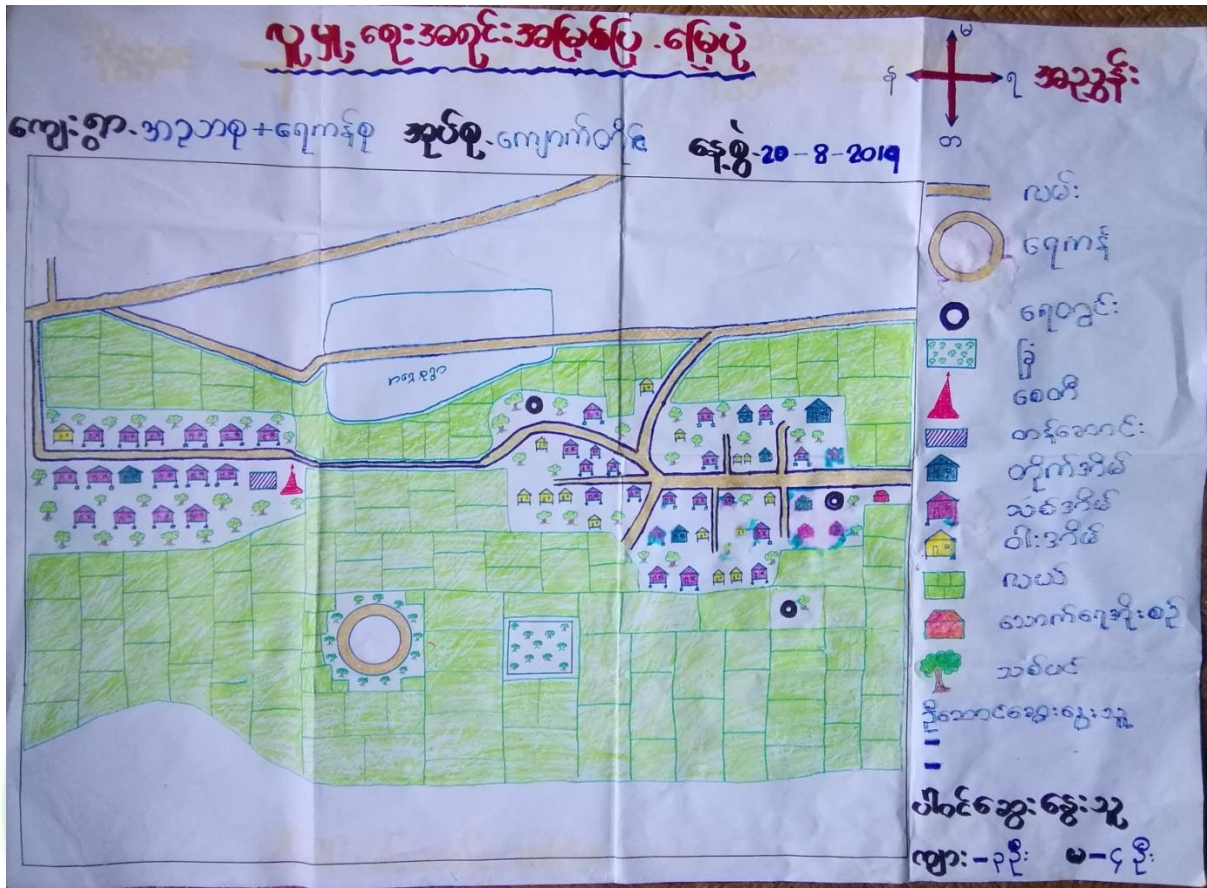 လူမှု့ရေးအရင်းအမြစ်ပြ မြေပုံ
မ
န ရ
တ
အညွှန်း
ကျေးရွာ- +ရေကန်စု အုပ်စု-ကျောက်တိုင် နေ့စွဲ-20-8-2019
လမ်း
ရေကန်
ရေတွင်း
ခြံ
စေတီ
တန်ဆောင်း
တိုက်အိမ်
သစ်အိမ်
ဝါးအိမ်
လယ်
သောက်ရေအိုးစဉ်
သစ်ပင်
ဦးဆောင်ဆွေးနွေးသူ
-
-
ပါဝင်ဆွေးနွေးသူ
ကျား-၃ဦး မ-၄ဦး